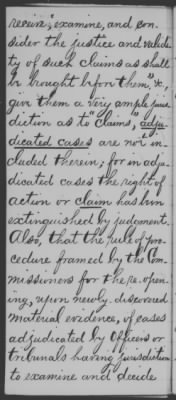 receive, examine, and con-
sider the justice and validi-
ty of such claims as shall
be brought before them," &c,
give them a very ample juris-
diction as to "claims", adju-
dicated cases are not in-
cluded therein; for in adju-
dicated cases the right of
action or claim has been
extinguished by judgment.
Also, that the rule of pro-
cedure framed by the Com-
missioners for the re-open-
ing, upon newly discovered
material evidence, of cases
adjudicated by Officers or
tribunals having jurisdiction
to examine and decide